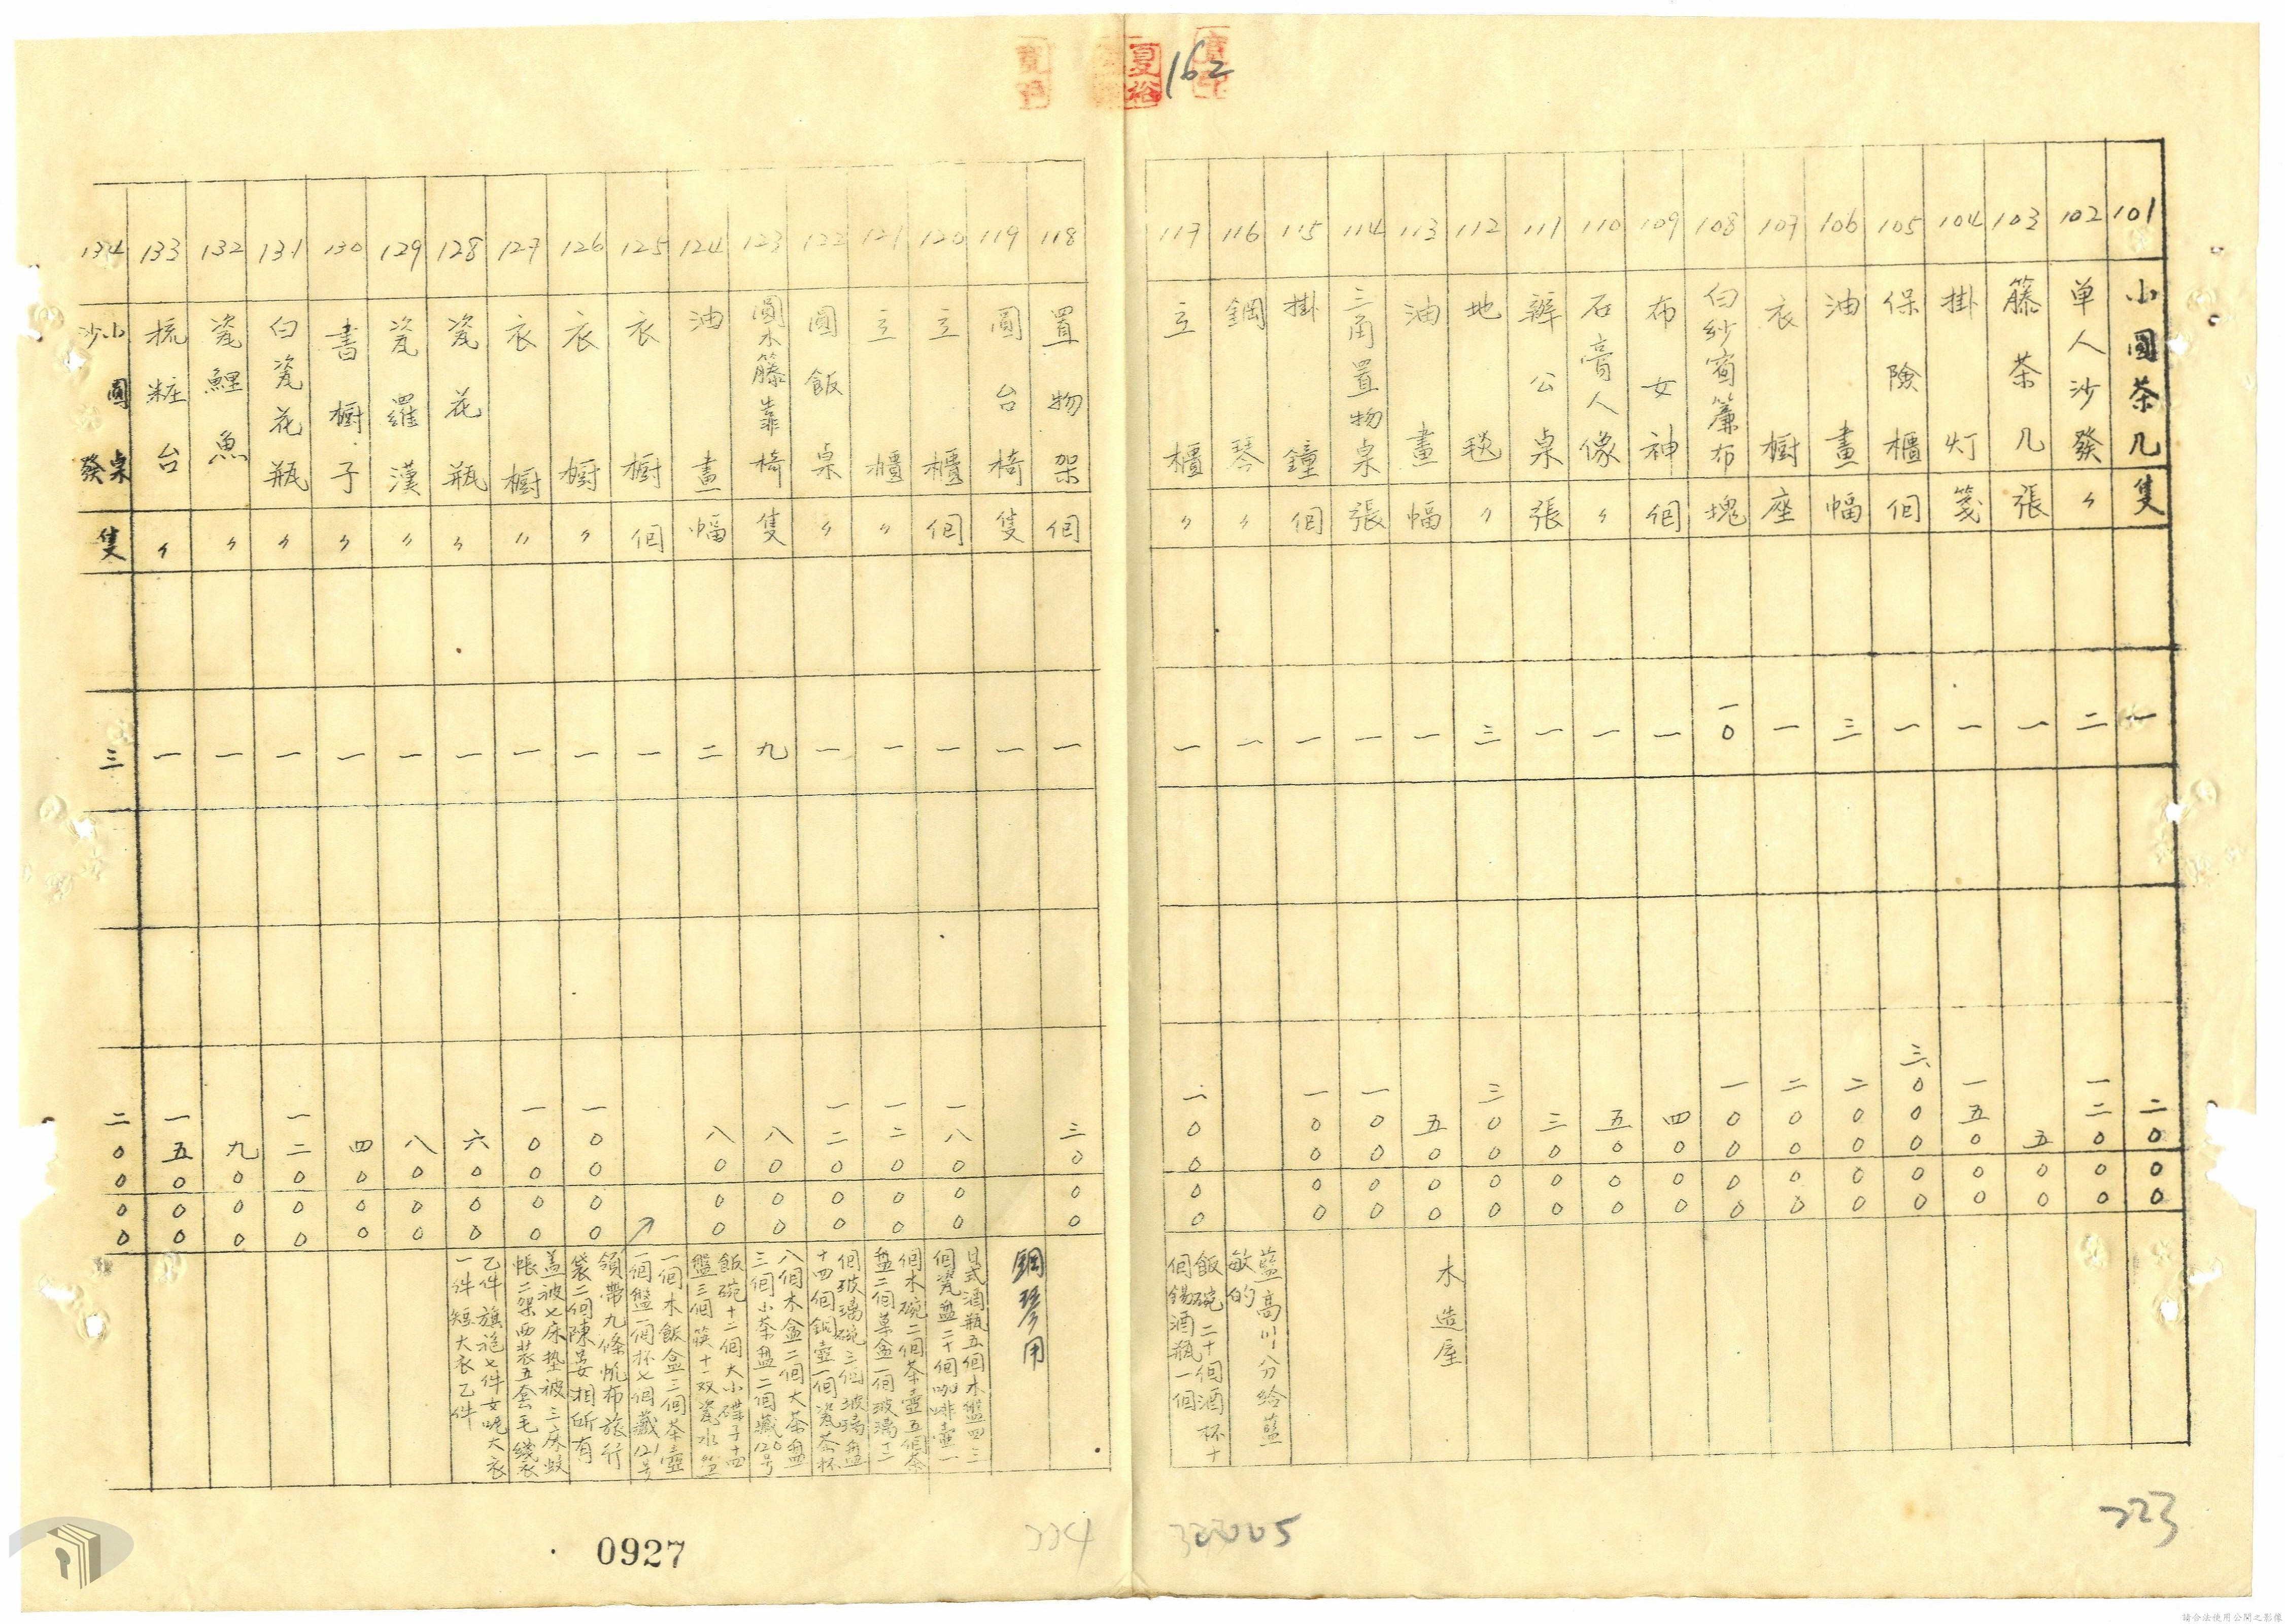 162
夏裕
101 小圓茶几 隻 一 二〇〇〇
102 单人沙發 〃 二 一二〇〇〇
103 籐茶几 張 一 五〇〇
104 掛灯 笺 一 一五〇〇〇
105 保險櫃 個 一 三、〇〇〇〇〇
106 油畫 幅 三 二〇〇〇〇
107 衣橱 座 一 二〇〇〇〇
108 白紗窗簾布 塊 一〇 一〇〇〇〇
109 布女神 個 一 四〇〇〇
110 石膏人像 〃 一 五〇〇〇
111 辦公桌 張 一 三〇〇〇
112 地毯 〃 三 三〇〇〇〇
113 油畫 幅 一 五〇〇〇 木造屋
114 三角置物桌 張 一 一〇〇〇〇
115 掛鐘 個 一 一〇〇〇〇
116 鋼琴 〃 一 藍高川分給藍敏的
117 立櫃 〃 一 一〇〇〇〇 飯碗二十個酒杯十個錫酒瓶一個
118 置物架 個 一 三〇〇〇
119 圓台椅 隻 一 鋼琴用
120 立櫃 個 一 一八〇〇〇 日式酒瓶五個木盤四三個瓷盤二十個咖啡壷一
121 立櫃 〃 一 一二〇〇〇 個木碗二個茶壷五個茶盤二個菓盒一個玻璃十二
122 圓飯桌 〃 一 一二〇〇〇 個玻璃碗三個玻璃盤十四個銅壷一個瓷茶杯
123 圓木籐靠椅 隻 九 八〇〇〇 八個木盒二個大茶盤三個小茶盤二個藏120号
124 油畫 幅 二 八〇〇〇 飯碗十二個大小碟子十四盤三個筷十一双瓷水盤
125 衣橱 個 一 一個木飯盒三個茶壷一個盤一個杯七個藏121号
126 衣橱 〃 一 一〇〇〇〇 領帶九條帆布旅行袋二個陳晏相所有
127 衣橱 〃 一 一〇〇〇〇 盖被七床墊被三床蚊帳二架西装五套毛綫衣
128 瓷花瓶 〃 一 六〇〇〇 乙件旗袍七件女呢大衣一件短大衣乙件
129 瓷羅漢 〃 一 八〇〇〇
130 書橱子 〃 一 四〇〇〇
131 白瓷花瓶 〃 一 一二〇〇〇
132 瓷鯉魚 〃 一 九〇〇〇
133 梳粧台 〃 一 一五〇〇〇
134 小圓桌沙發 隻 三 二〇〇〇〇
223
224
0927
請合法使用公開之影像